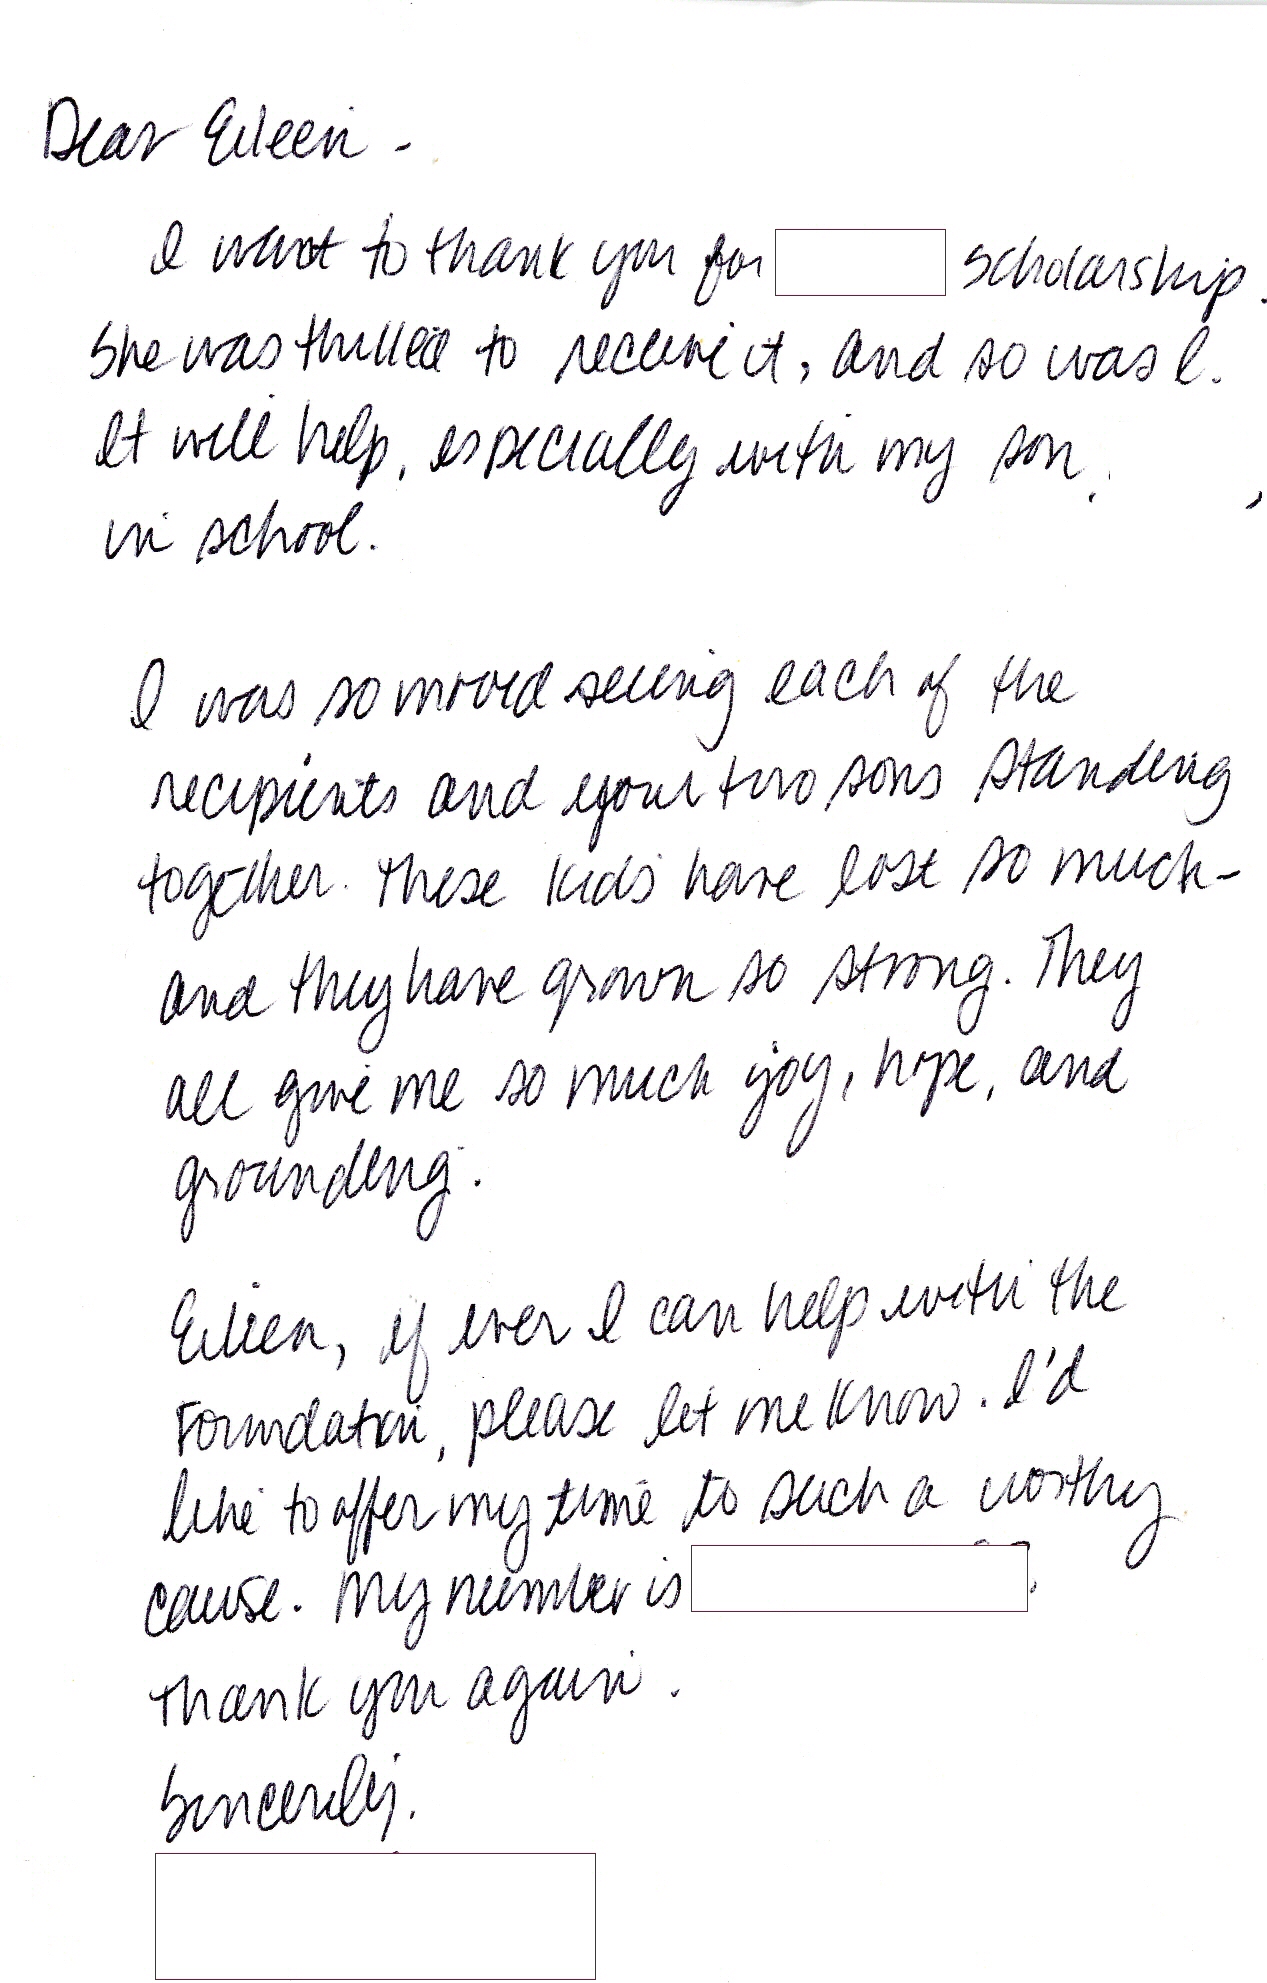 Dear Eileen -
I want to thank you for scholarship.
She was thrilled to receive it, and so was I.
It will help, especially with my son,
in school.
I was so moved seeing each of the
recipients and your two sons standing
together. These kids have lost so much-
and they have grown so strong. They
all give me so much joy, hope, and
grounding.
Eileen, if ever I can help with the
Foundation, please let me know. I'd
like to offer my time to such a worthy
cause. My number is .
Thank you again.
Sincerely,